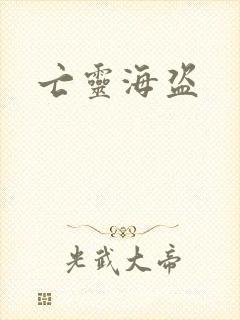 亡靈海盗
光武大帝